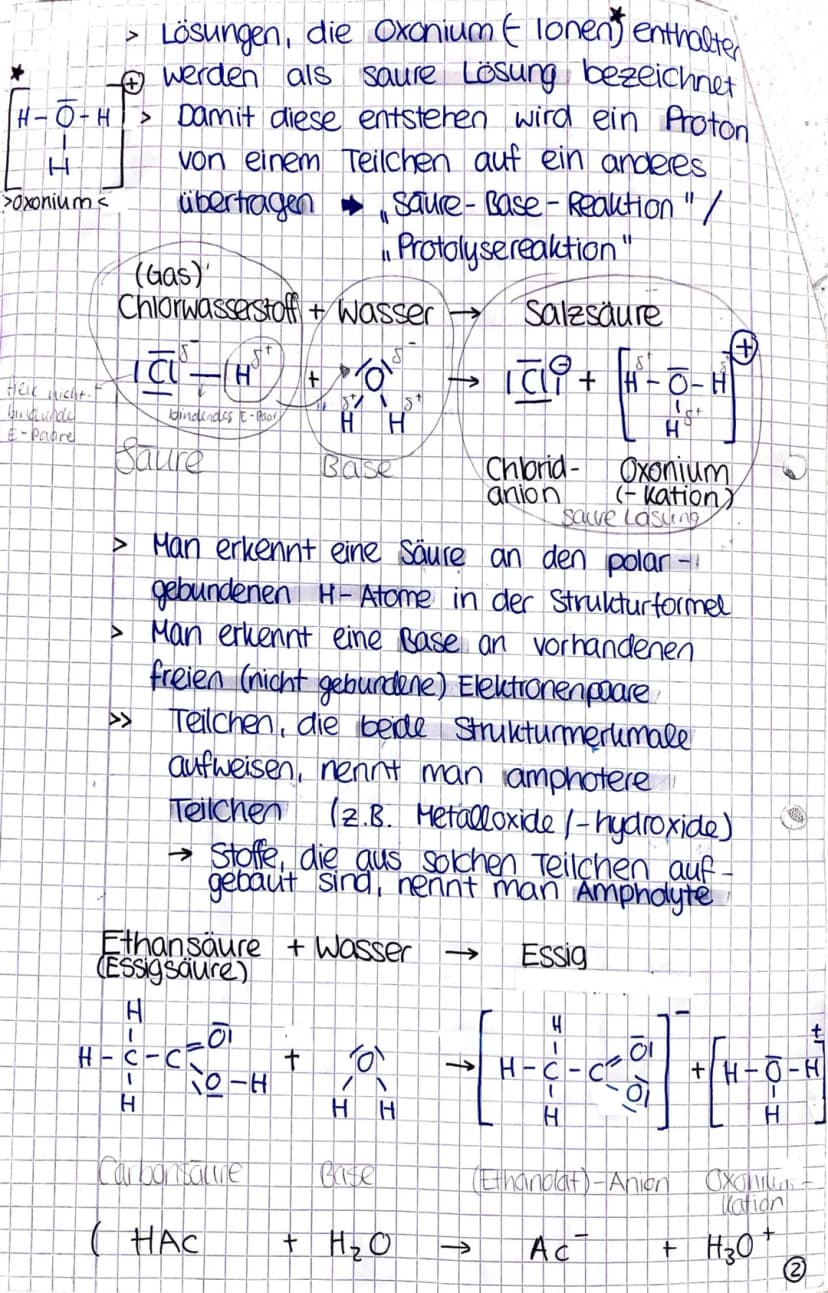 > Lösungen, die Oxonium(-Ionen)* enthalten
werden als saure Lösung bezeichnet
* [H-O-H
H]⊕
>oxonium<
> Damit diese entstehen wird ein Proton
von einem Teilchen auf ein anderes
übertragen → „Säure-Base-Reaktion"/
„Protolysereaktion"
(Gas)
Chlorwasserstoff + Wasser → Salzsäure
|Cl δ- — H δ+ + O δ- → |Cl|⊖ + [δ+ H-O-H δ+]⊕
bindendes E-Paar δ+ H H δ+ H δ+
nicht-
bindende
E-Paare
Säure Base Chlorid- Oxonium
anion (-Kation)
saure Lösung
> Man erkennt eine Säure an den polar-
gebundenen H-Atome in der Strukturformel
> Man erkennt eine Base an vorhandenen
freien (nicht gebundene) Elektronenpaare
>> Teilchen, die beide Strukturmerkmale
aufweisen, nennt man amphotere
Teilchen (z.B. Metalloxide/-hydroxide)
→ Stoffe, die aus solchen Teilchen auf-
gebaut sind, nennt man Ampholyte
Ethansäure + Wasser → Essig
(Essigsäure)
H H
H-C-C=O| + O → [H-C-C=O|]⁻ + [H-O-H]+
H O-H H H H O| H
Carbonsäure Base (Ethanolat)-Anion Oxonium-
Kation
( HAc + H₂O → Ac⁻ + H₃O⁺
②